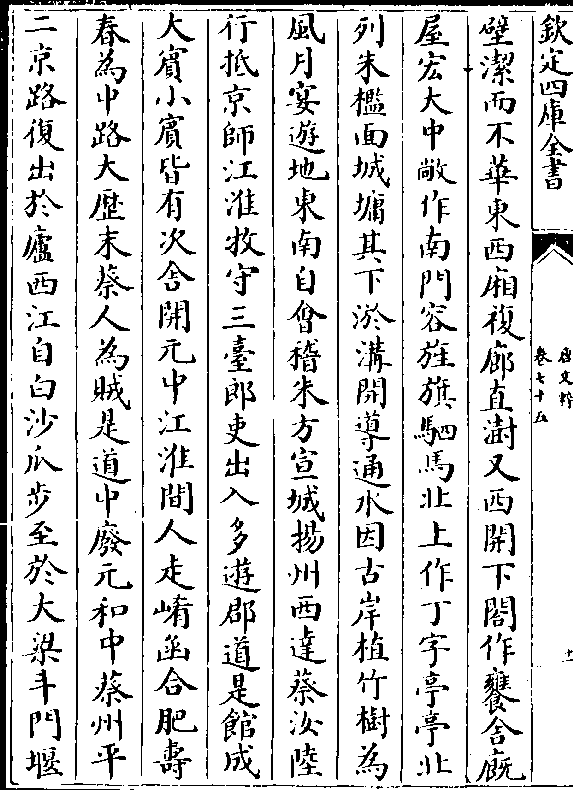 欽定四庫全書
唐文粹
卷七十五
十一
壁潔而不華東西廂複廊直澍又西開下閣作饔舍廐
屋宏大中敞作南門容旌旗駟馬北上作丁字亭亭北
列朱檻面城墉其下淤溝開導通水因古岸植竹樹為
風月宴遊地東南自會稽朱方宣城揚州西達蔡汝陸
行抵京師江淮牧守三臺郎吏出入多遊郡道是館成
大賓小賓皆有次舍開元中江淮間人走崤函合肥壽
春為中路大歷末蔡人為賊是道中廢元和中蔡州平
二京路復出於廬西江自白沙瓜步至於大梁斗門堰